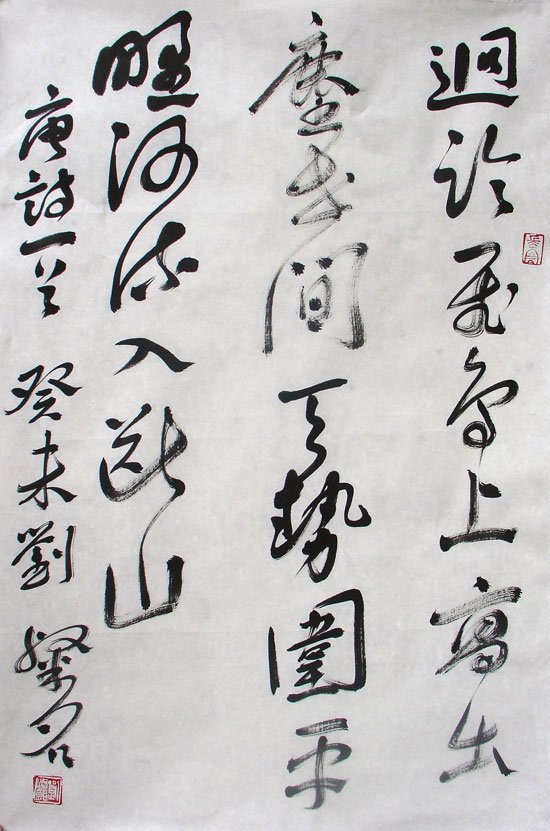 迥臨飛鳥上高出
塵世間天勢圍平
野河流入斷山
唐詩一首 癸未劉